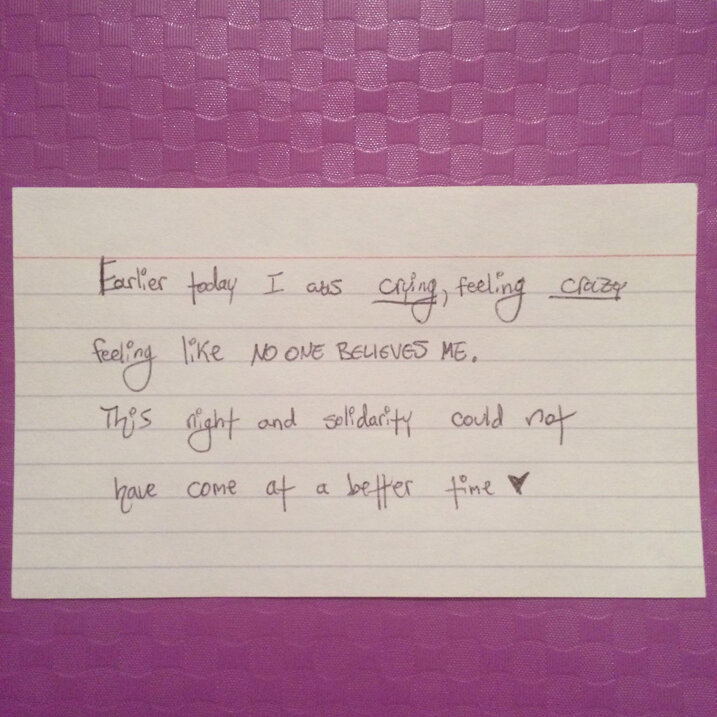 Earlier today I was crying, feeling crazy
feeling like NO ONE BELIEVES ME.
This night and solidarity could not
have come at a better time ♥